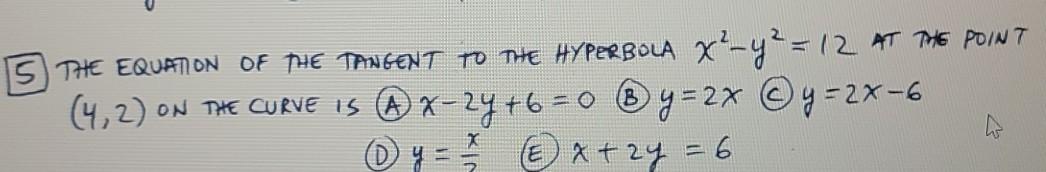 5 THE EQUATION OF THE TANGENT TO THE HYPERBOLA x²-y²=12 AT THE POINT
(4,2) ON THE CURVE IS (A) x-2y+6=0 (B) y=2x (C) y=2x-6
(D) y = x/2 (E) x+2y=6